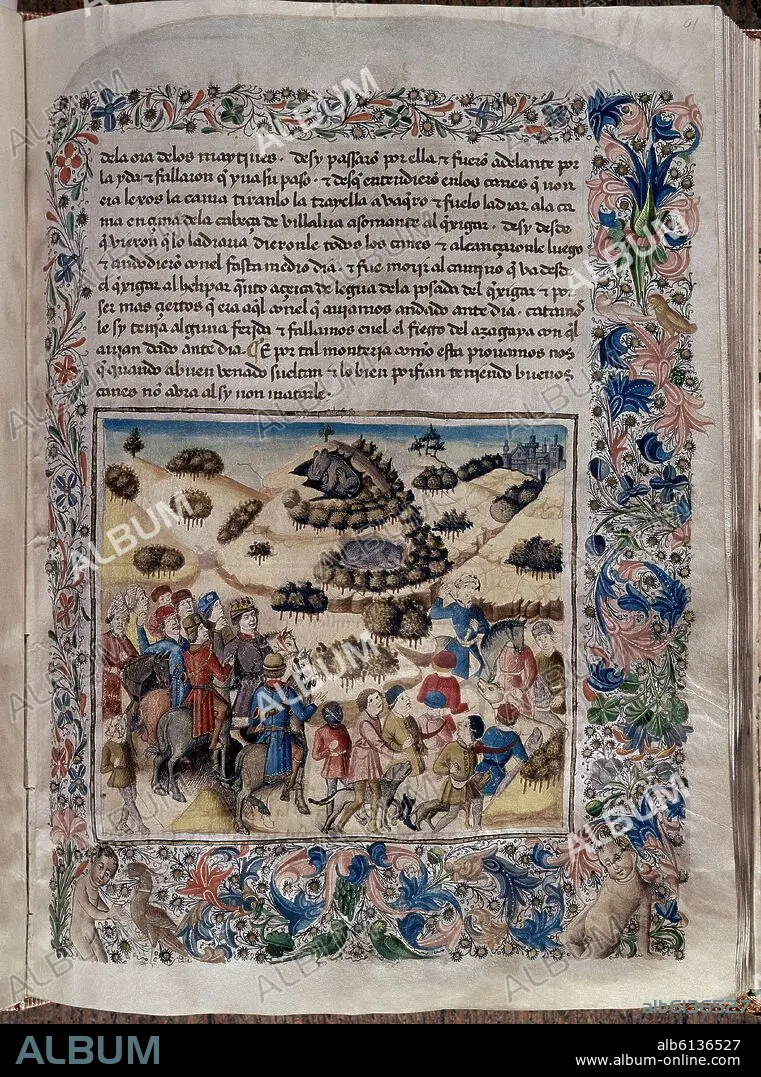 91
dela ora delos maytines. desy passarō por ella & fuerō adelante por
la yda & fallaron q̄ yua su paso. & desq̄ entendierō enlos canes q̄ non
era lexos la cama tirarōlo la trayella a vaq̄ro & fuelo ladrar ala ca
ma en çima dela cabeça de villalua asomante al q̄xigar. desy desde
q̄ vieron q̄ lo ladraua dieronle todos los canes & alcançaronle luego
& andodierō conel fasta medio dia. & fue morir al camino q̄ va desde
el q̄xigar al helipar q̄nto açerca de legua dela posada del q̄xigar & por
ser mas çiertos q̄ era aq̄l conel q̄ auiamos andado ante dia. catamos
le sy tenia alguna ferida & fallamos enel el fierro del azagaya con q̄l
auian dado ante dia. E por tal monteria como esta prouamos nos
q̄ quando a buen venado sueltan & lo bien porfian teniendo buenos
canes no abra al sy non matarle.
ALBUM
alb6136527
ALBUM
alb6136527
www.album-online.com